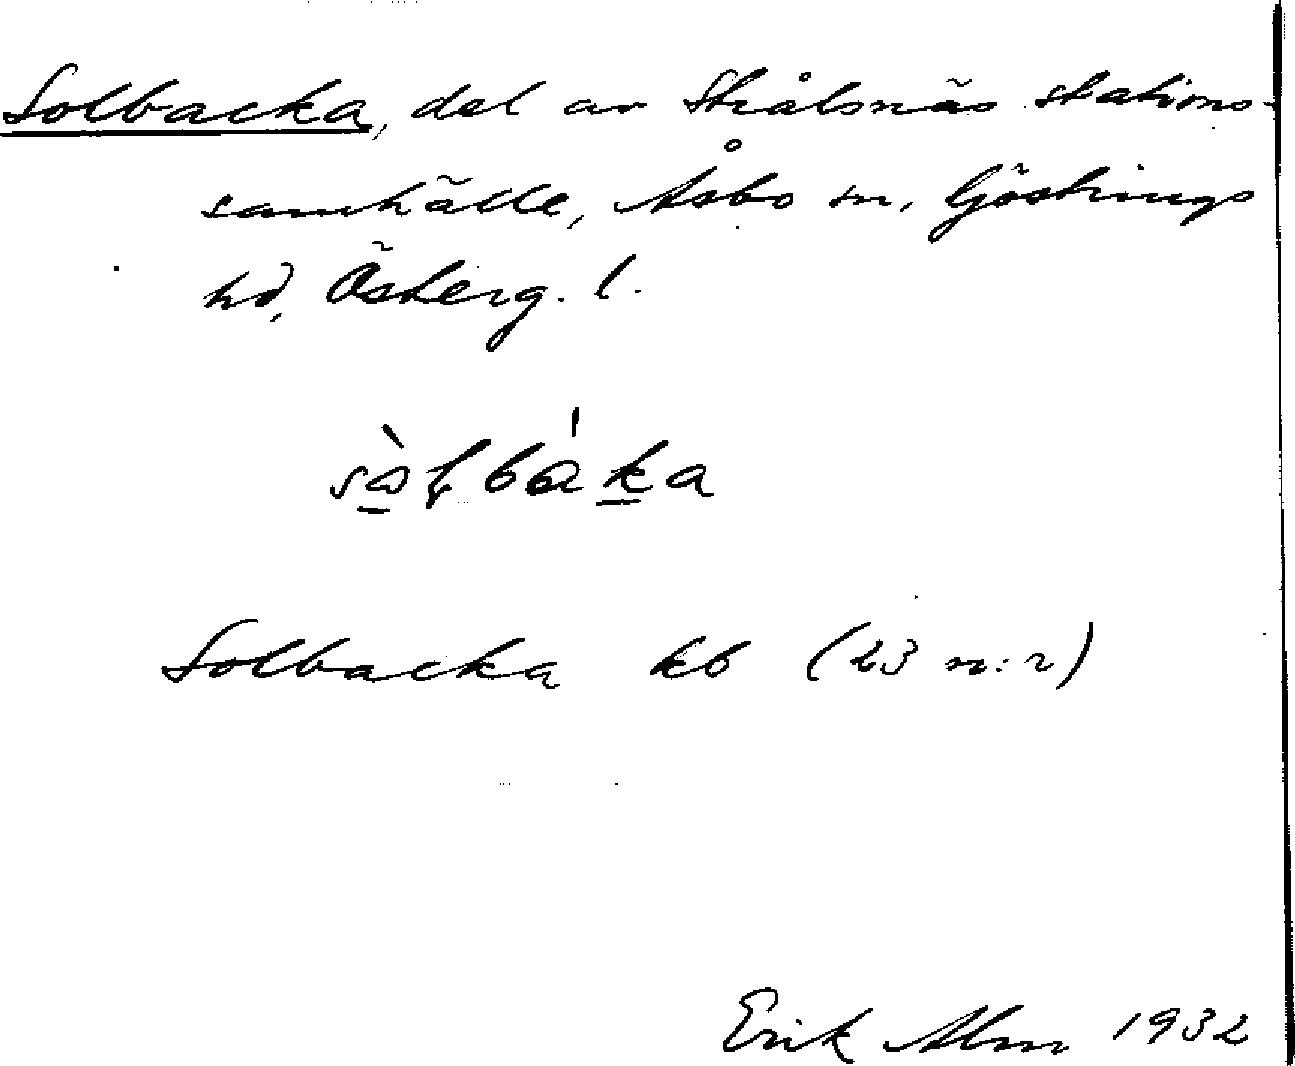 Solbacka, del av Strålsnäs stations-
samhälle, Åsbo sn, Göstrings
hd, Österg. l.
sòɭbáka
Solbacka kb (23 n:r)
Erik Alm 1932